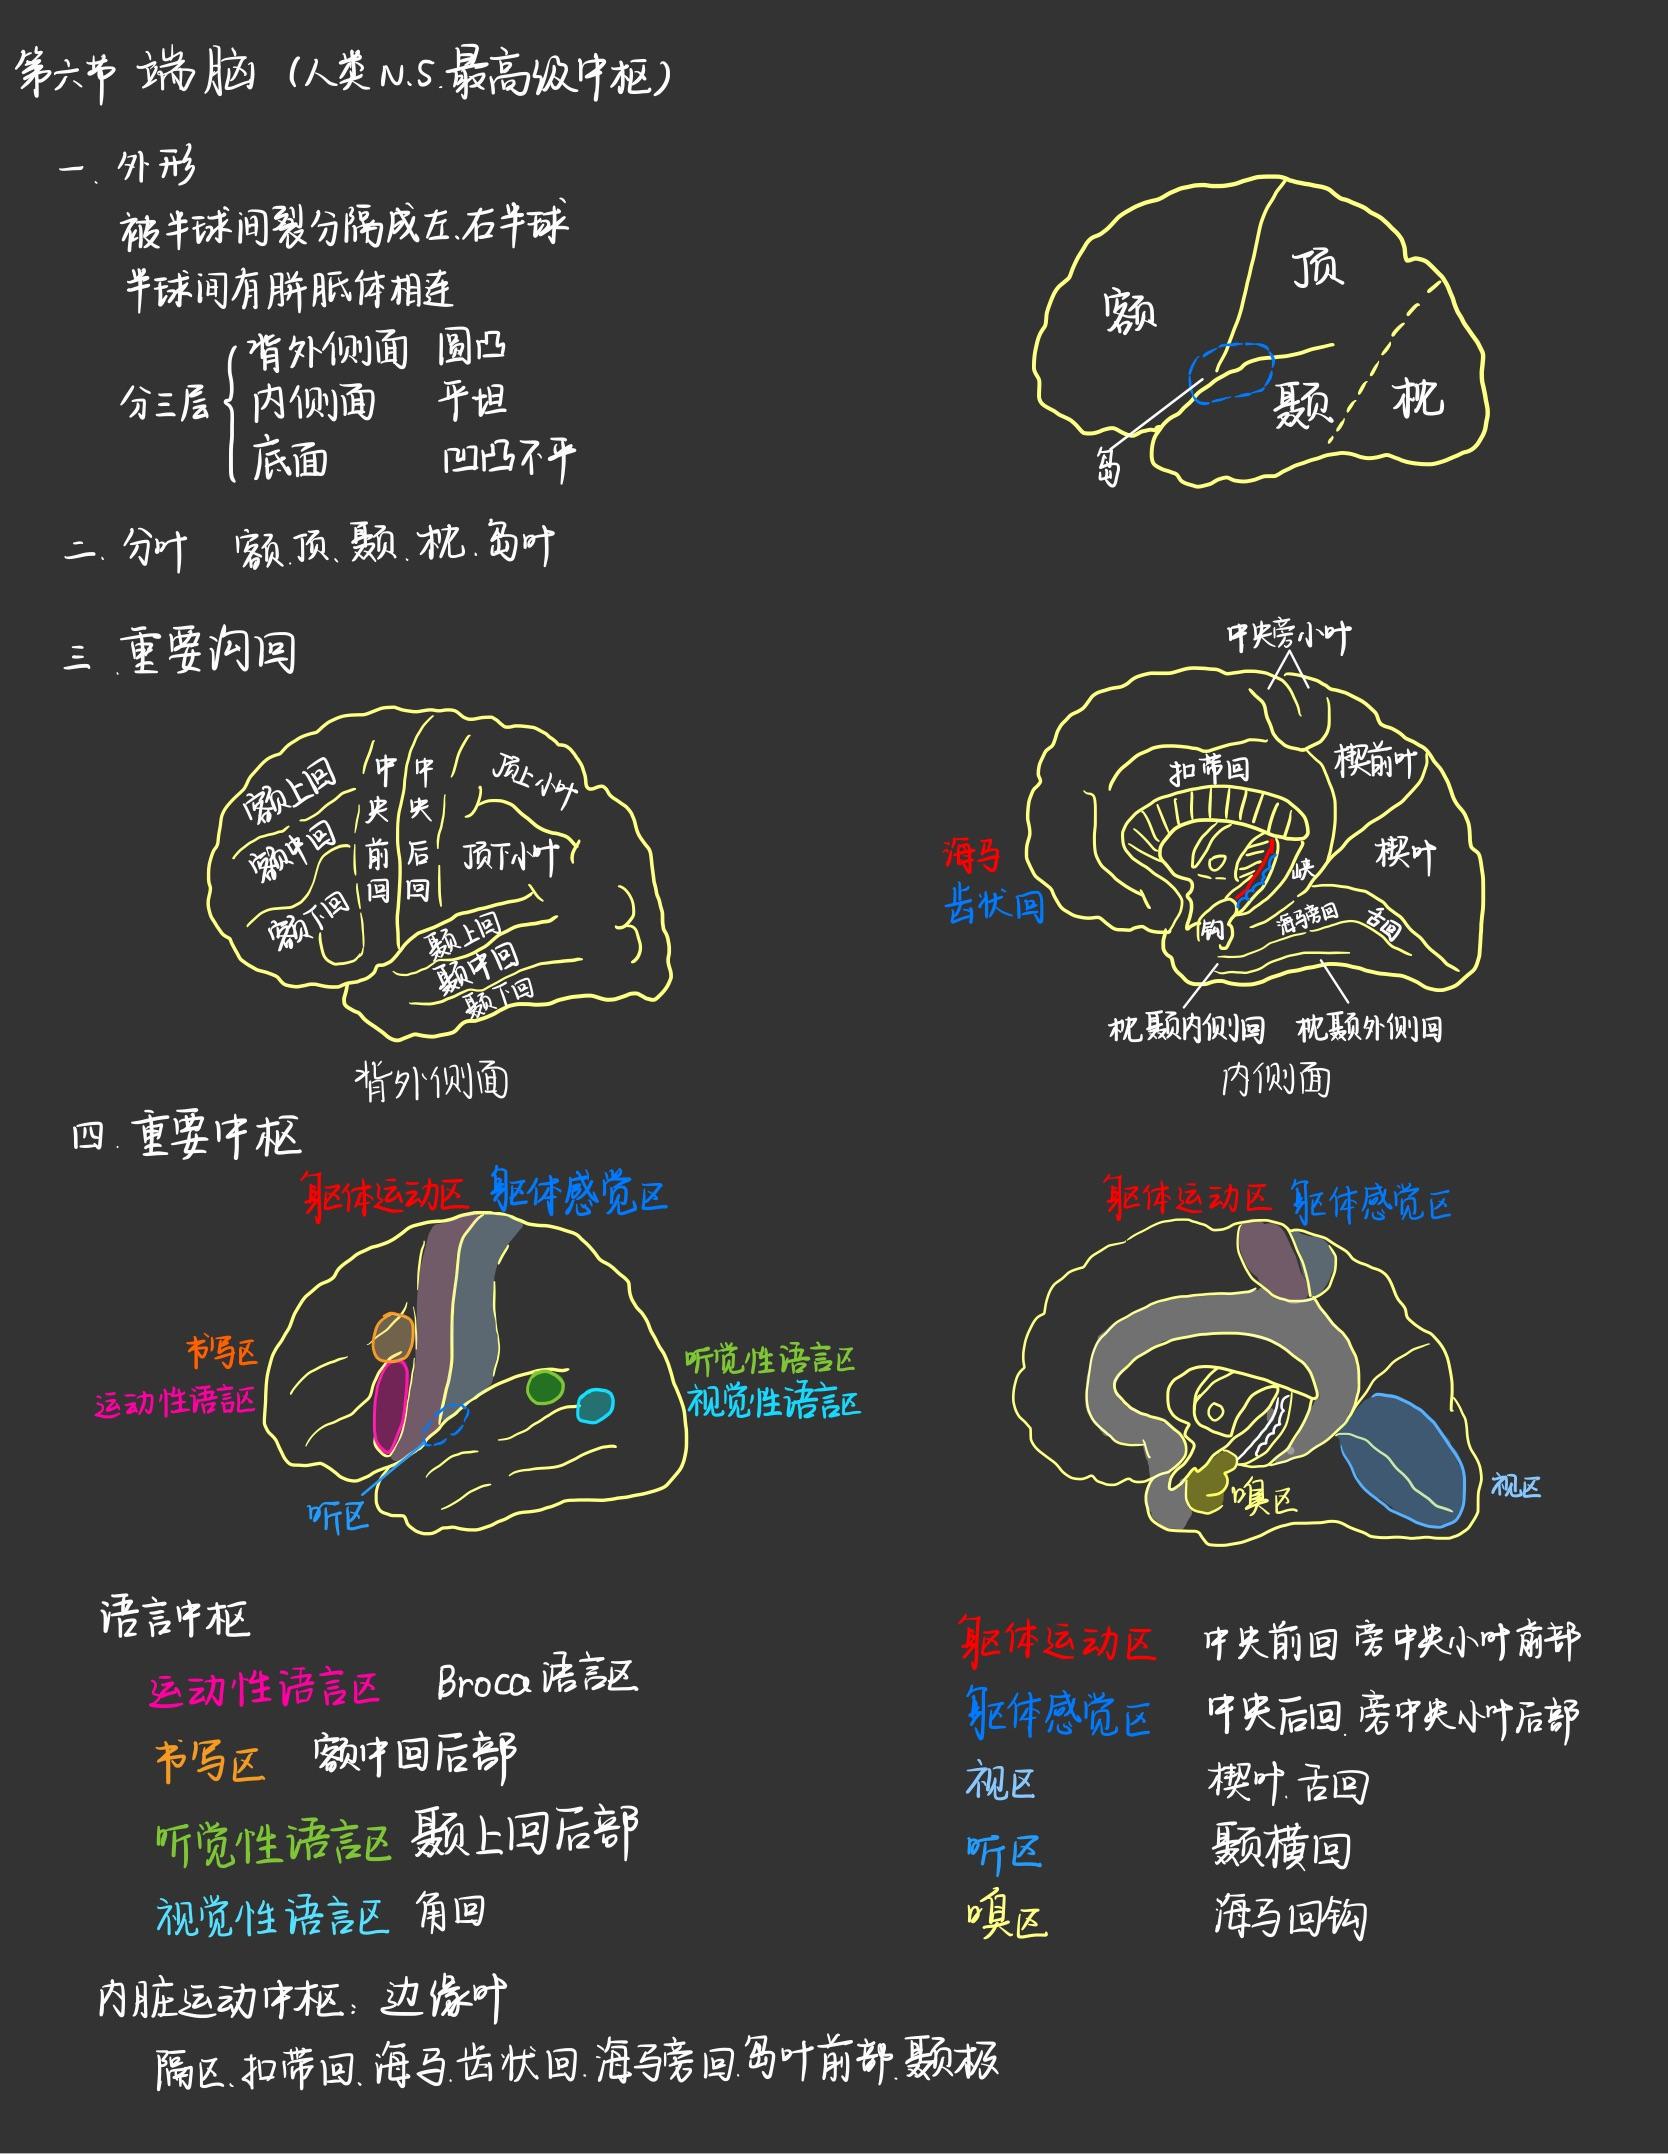 第六节 端脑 (人类N.S.最高级中枢)
一、外形
被半球间裂分隔成左、右半球
半球间有胼胝体相连
分三层
背外侧面 圆凸
内侧面 平坦
底面 凹凸不平
额
顶
颞
枕
岛
二、分叶 额、顶、颞、枕、岛叶
三、重要沟回
额上回
额中回
额下回
中央前回
中央后回
顶上小叶
顶下小叶
颞上回
颞中回
颞下回
背外侧面
中央旁小叶
扣带回
楔前叶
楔叶
海马
齿状回
峡
钩
海马旁回
舌回
枕颞内侧回
枕颞外侧回
内侧面
四、重要中枢
躯体运动区 躯体感觉区
书写区
运动性语言区
听觉性语言区
视觉性语言区
听区
躯体运动区 躯体感觉区
嗅区
视区
语言中枢
运动性语言区 Broca语言区
书写区 额中回后部
听觉性语言区 颞上回后部
视觉性语言区 角回
躯体运动区 中央前回 旁中央小叶前部
躯体感觉区 中央后回、旁中央小叶后部
视区 楔叶、舌回
听区 颞横回
嗅区 海马回钩
内脏运动中枢：边缘叶
隔区、扣带回、海马、齿状回、海马旁回、岛叶前部、颞极